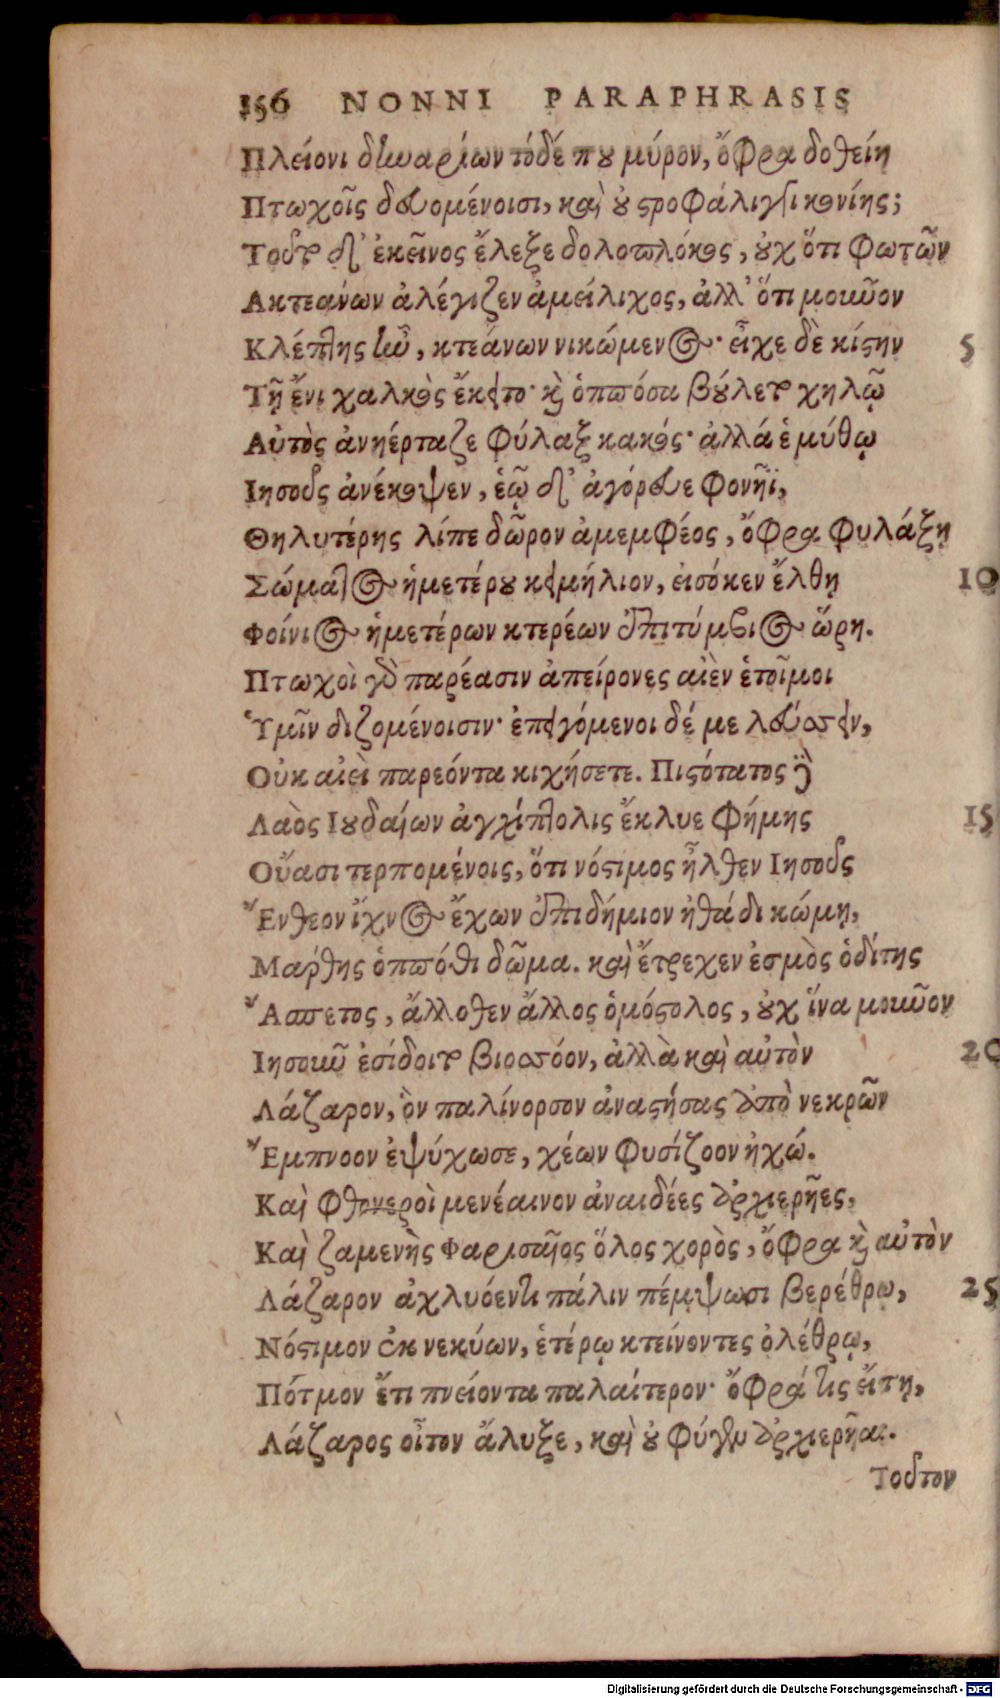 156 NONNI PARAPHRASIS
Πλείονι δηναρίων τόδέ που μύρον, ὄφρα δοθείη
Πτωχοῖς δευομένοισι, καὶ οὐ στροφάλιγγι κονίης;
Τοῦτο δ' ἐκεῖνος ἔλεξε δολοπλόκος, οὐχ ὅτι φωτῶν
Ακτεάνων ἀλέγιζεν ἀμείλιχος, ἀλλ' ὅτι μοῦνον
Κλέπτης ἦν, κτεάνων νικώμενος· εἶχε δὲ κίστην
5
Τῇ ἔνι χαλκὸς ἔκειτο· καὶ ὁππόσα βούλετο χηλῷ
Αὐτὸς ἀνηέρταζε φύλαξ κακός· ἀλλά ἑ μύθῳ
Ιησοῦς ἀνέκοψεν, ἑῷ δ' ἀγόρευε φονῆϊ,
Θηλυτέρης λίπε δῶρον ἀμεμφέος, ὄφρα φυλάξῃ
Σώματος ἡμετέρου κειμήλιον, εἰσόκεν ἔλθῃ
10
Φοίνιος ἡμετέρων κτερέων ἐπιτύμβιος ὥρη.
Πτωχοὶ γὸ παρέασιν ἀπείρονες αἰὲν ἑτοῖμοι
Ὑμῖν διζομένοισιν· ἐπειγόμενοι δέ με λεύσσειν,
Οὐκ αἰεὶ παρεόντα κιχήσετε. Πιστότατος δὲ
Λαὸς Ιουδαίων ἀγχίπτολις ἔκλυε φήμης
15
Οὔασι τερπομένοις, ὅτι νόστιμος ἦλθεν Ιησοῦς
Ἔνθεον ἴχνος ἔχων ἐπιδήμιον ἠθάδι κώμῃ,
Μάρθης ὁππόθι δῶμα. καὶ ἔτρεχεν ἑσμὸς ὁδίτης
Ἄσπετος, ἄλλοθεν ἄλλος ὁμόστολος, οὐχ ἵνα μοῦνον
Ιησοῦν ἐσίδοιτο βιοσσόον, ἀλλὰ καὶ αὐτὸν
20
Λάζαρον, ὃν παλίνορσον ἀναστήσας ἀπὸ νεκρῶν
Ἔμπνοον ἐψύχωσε, χέων φυσίζοον ἠχώ.
Καὶ φθονεροὶ μενέαινον ἀναιδέες ἀρχιερῆες,
Καὶ ζαμενὴς Φαρισαῖος ὅλος χορὸς, ὄφρα καὶ αὐτὸν
Λάζαρον ἀχλυόεντι πάλιν πέμψωσι βερέθρῳ,
25
Νόστιμον ἐκ νεκύων, ἑτέρῳ κτείνοντες ὀλέθρῳ,
Πότμον ἔτι πνείοντα παλαίτερον· ὄφρά τις εἴπῃ,
Λάζαρος οἶτον ἄλυξε, καὶ οὐ φύγεν ἀρχιερῆας.
Τοῦτον
Digitalisierung gefördert durch die Deutsche Forschungsgemeinschaft - DFG